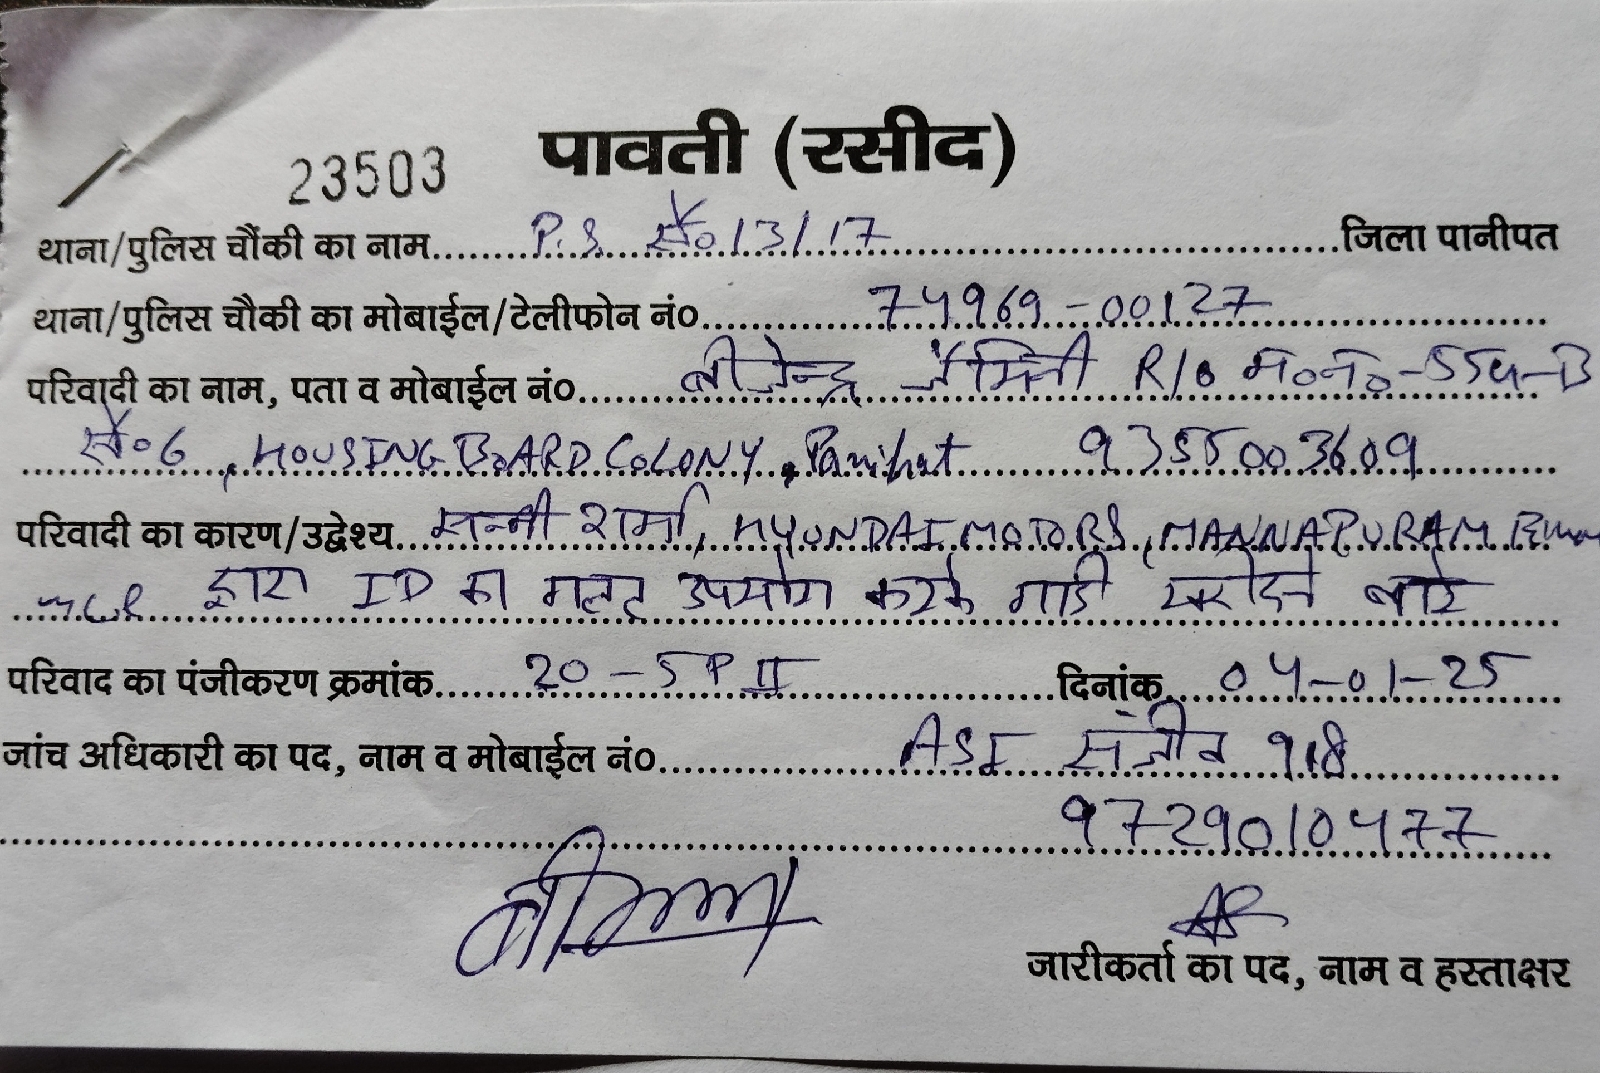 23503 पावती (रसीद)
थाना/पुलिस चौंकी का नाम..........P.S. सै० 13/17..........जिला पानीपत
थाना/पुलिस चौकी का मोबाईल/टेलीफोन नं०..........74969-00127..........
परिवादी का नाम, पता व मोबाईल नं०..........बीजेन्द्र जैमिनी R/o म०न०-554-B
सै०6, HOUSING BOARD COLONY, Panipat 9355003609
परिवादी का कारण/उद्वेश्य....सन्नी शर्मा, HYUNDAI MOTORS, MANNAPURAM
द्वारा ID का गलत उपयोग करके गाडी खरीदने बारे
परिवाद का पंजीकरण क्रमांक..........20-5P II..........दिनांक....04-01-25
जांच अधिकारी का पद, नाम व मोबाईल नं०..........ASI संजीव 918
9729010477
जारीकर्ता का पद, नाम व हस्ताक्षर